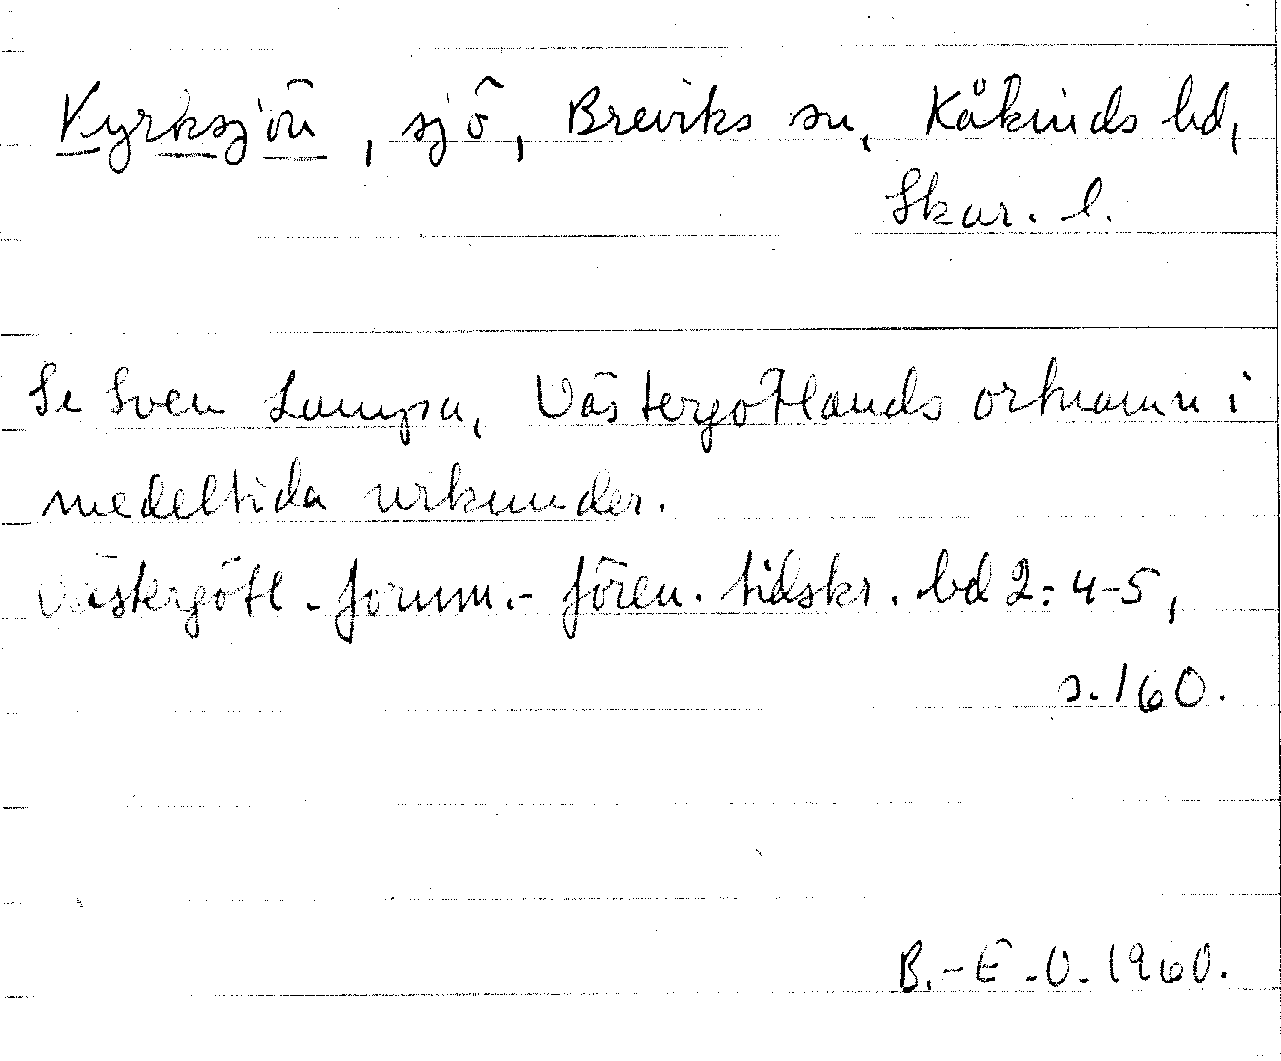 Kyrksjön, sjö, Breviks sn, Kåkinds hd,
Skar. l.
Se Sven Lampa, Västergötlands ortnamn i
medeltida urkunder.
Västergötl. fornm.- fören. tidskr. bd 2:4-5,
s. 160.
B.-E.O. 1960.